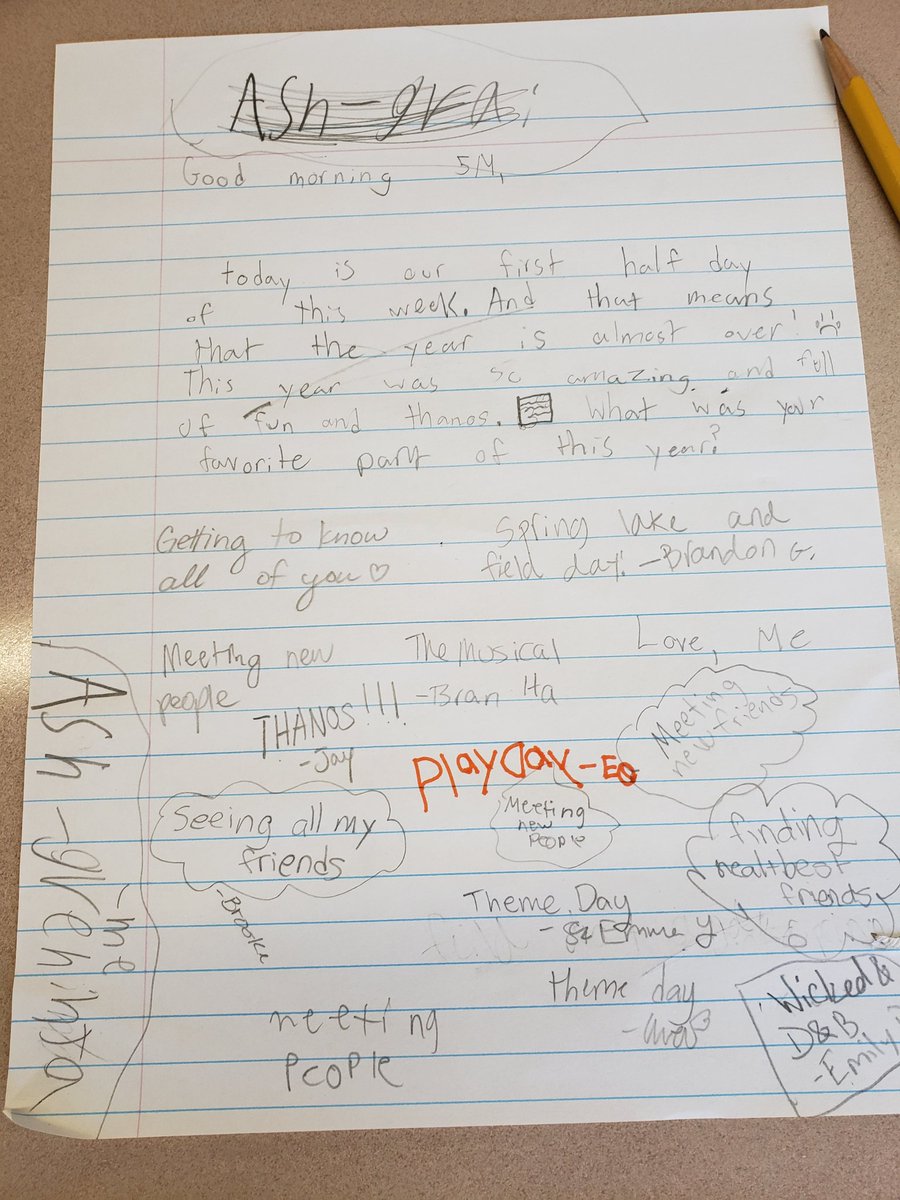 Good morning 5/4,
today is our first half day
of this week. And that means
that the year is almost over!
This year was so amazing. and full
of fun and thanos. What was your
favorite part of this year?
Getting to know
all of you♡
Spring lake and
field day! -Brandon G.
Meeting new
people
The Musical
-Bran Ha
Love, Me
THANOS!!!
-Jay
Meeting
new friends
Playday-EO
Seeing all my
friends
-Brooke
Meeting
new
People
finding
friends
Theme Day
Emma Y
theme day
meeting
people
Wicked &
D&B
-Emily
Ash-grehinsta
-me